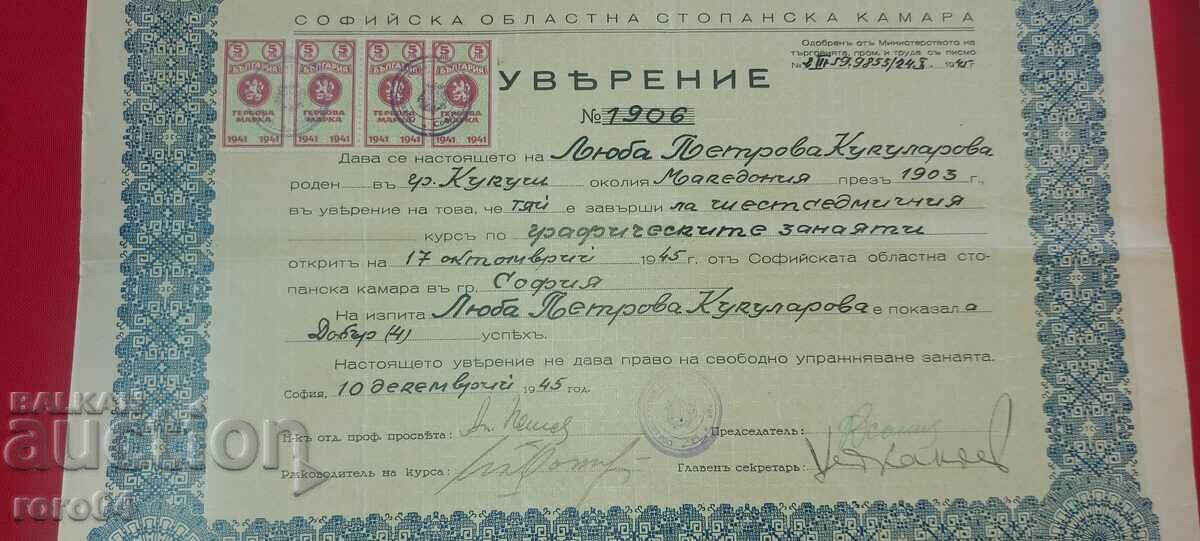 СОФИЙСКА ОБЛАСТНА СТОПАНСКА КАМАРА
Одобренъ отъ Министерството на
търговията, пром. и труда съ писмо
5 5 5 5 5 5 5 5
БЪЛГАРИЯ БЪЛГАРИЯ БЪЛГАРИЯ БЪЛГАРИЯ
ГЕРБОВА МАРКА ГЕРБОВА МАРКА ГЕРБОВА МАРКА ГЕРБОВА МАРКА
1941 1941 1941 1941 1941 1941 1941 1941
УВѢРЕНИЕ
№ 1906
Дава се настоящето на Люба Петрова Кукуларова
роден въ гр. Кукуш околия Македония презъ 1903 г.,
въ уверение на това, че тяй е завърши ла шестседмичния
курсъ по графическите занаяти
откритъ на 17 октомврий 1945 г. отъ Софийската областна сто-
панска камара въ гр. София
На изпита Люба Петрова Кукуларова е показал а
Добър (4) успѣхъ.
Настоящето уверение не дава право на свободно упражняване занаята.
София, 10 декемврий 1945 год.
Н-къ отд. проф. просвѣта:
Председатель:
Рѫководитель на курса:
Главенъ секретарь:
BALKAN
auction
roro64